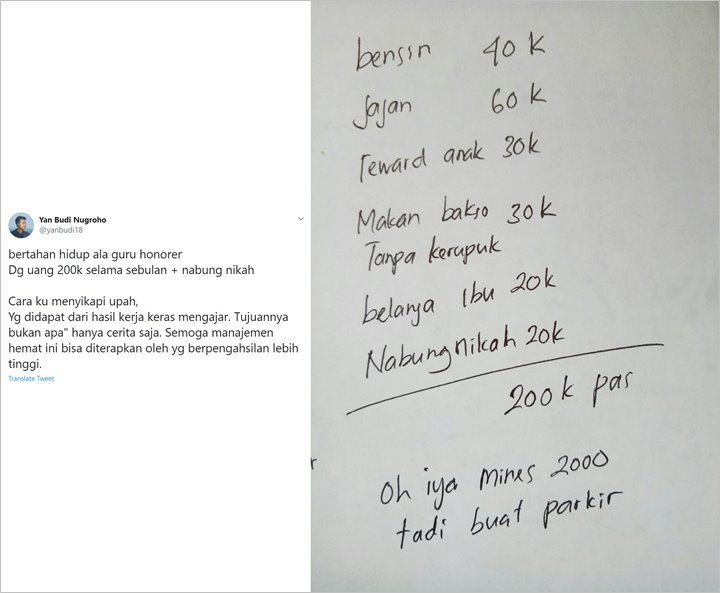 Yan Budi Nugroho
@yanbudi18
bertahan hidup ala guru honorer
Dg uang 200k selama sebulan + nabung nikah
Cara ku menyikapi upah,
Yg didapat dari hasil kerja keras mengajar. Tujuannya
bukan apa" hanya cerita saja. Semoga manajemen
hemat ini bisa diterapkan oleh yg berpengahsilan lebih
tinggi.
Translate Tweet
bensin 40 k
Jajan 60 k
reward anak 30k
Makan bakso 30k
Tanpa kerupuk
belanja Ibu 20k
Nabung nikah 20k
200k pas
r
Oh iya mines 2000
tadi buat parkir